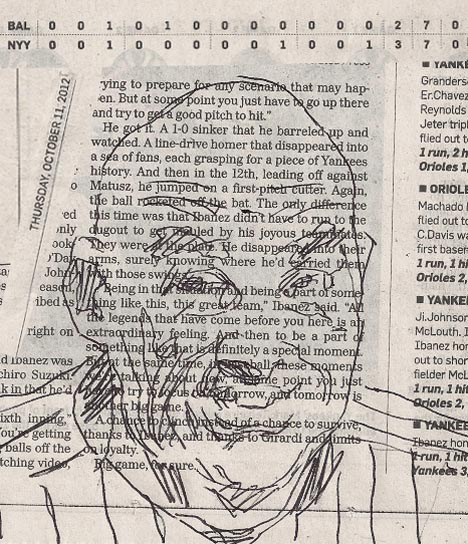 BAL 0 0 1 0 1 0 0 0 0 0 0 0 2 7 0
NYY 0 0 1 0 0 0 0 0 1 0 0 1 3 7 0
THURSDAY, OCTOBER 11, 2012
ying to prepare for any scenario that may hap-
en. But at some point you just have to go up there
and try to get a good pitch to hit."
He got it. A 1-0 sinker that he barreled up and
watched. A line-drive homer that disappeared into
a sea of fans, each grasping for a piece of Yankees
history. And then in the 12th, leading off against
Matusz, he jumped on a first-pitch cutter. Again,
the ball rocketed off the bat. The only difference
this time was that Ibanez didn't have to run to the
dugout to get mauled by his joyous teammates.
They were at the plate. He disappeared into their
arms, surely knowing where he'd carried them
with those swings.
"Being in this situation and being a part of some-
thing like this, this great team," Ibanez said. "All
the legends that have come before you here is an
extraordinary feeling. And then to be a part of
something like that is definitely a special moment.
But at the same time, in baseball, these moments
talking about now, at some point you just
try to focus on tomorrow, and tomorrow is
another big game."
A chance to clinch instead of a chance to survive,
thanks to Ibanez, and thanks to Girardi and limits
on loyalty.
Big game, for sure.
o
ed
only
ook
John
eason,
ibed as
right on
d Ibanez was
chiro Suzuki
k in that he'd
ixth inning,"
You're getting
balls off the
tching video,
■ YANKE
Granders
Er.Chavez
Reynolds
Jeter tripl
flied out to
1 run, 2 h
Orioles 1,
■ ORIOLE
Machado
flied out to
C.Davis w
first basem
1 run, 1 hi
Orioles 2,
■ YANKEE
Ji.Johnson
McLouth. I
Ibanez hom
out to shor
fielder McL
1 run, 1 hit
Orioles 2,
■ YANKEE
Ibanez hom
1 run, 1 hit
Yankees 3,